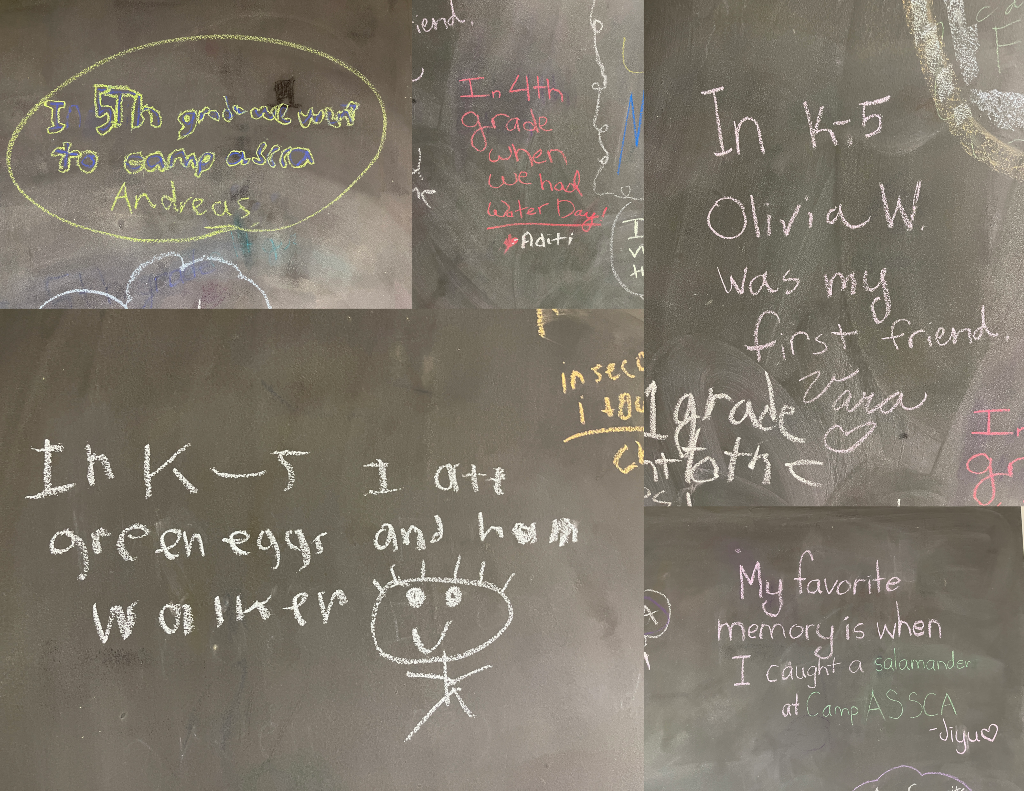 I 5Th grade we went
to camp assca
Andreas
iend.
In 4th
grade
when
we had
Water Day!
Aditi
I
In K-5
Olivia W.
was my
first friend.
Vara
1 grade
In
gr
In K-5 I att
green eggs and ham
walker
in sec
i to
My favorite
memory is when
I caught a salamander
at Camp ASSCA
-Jiyu